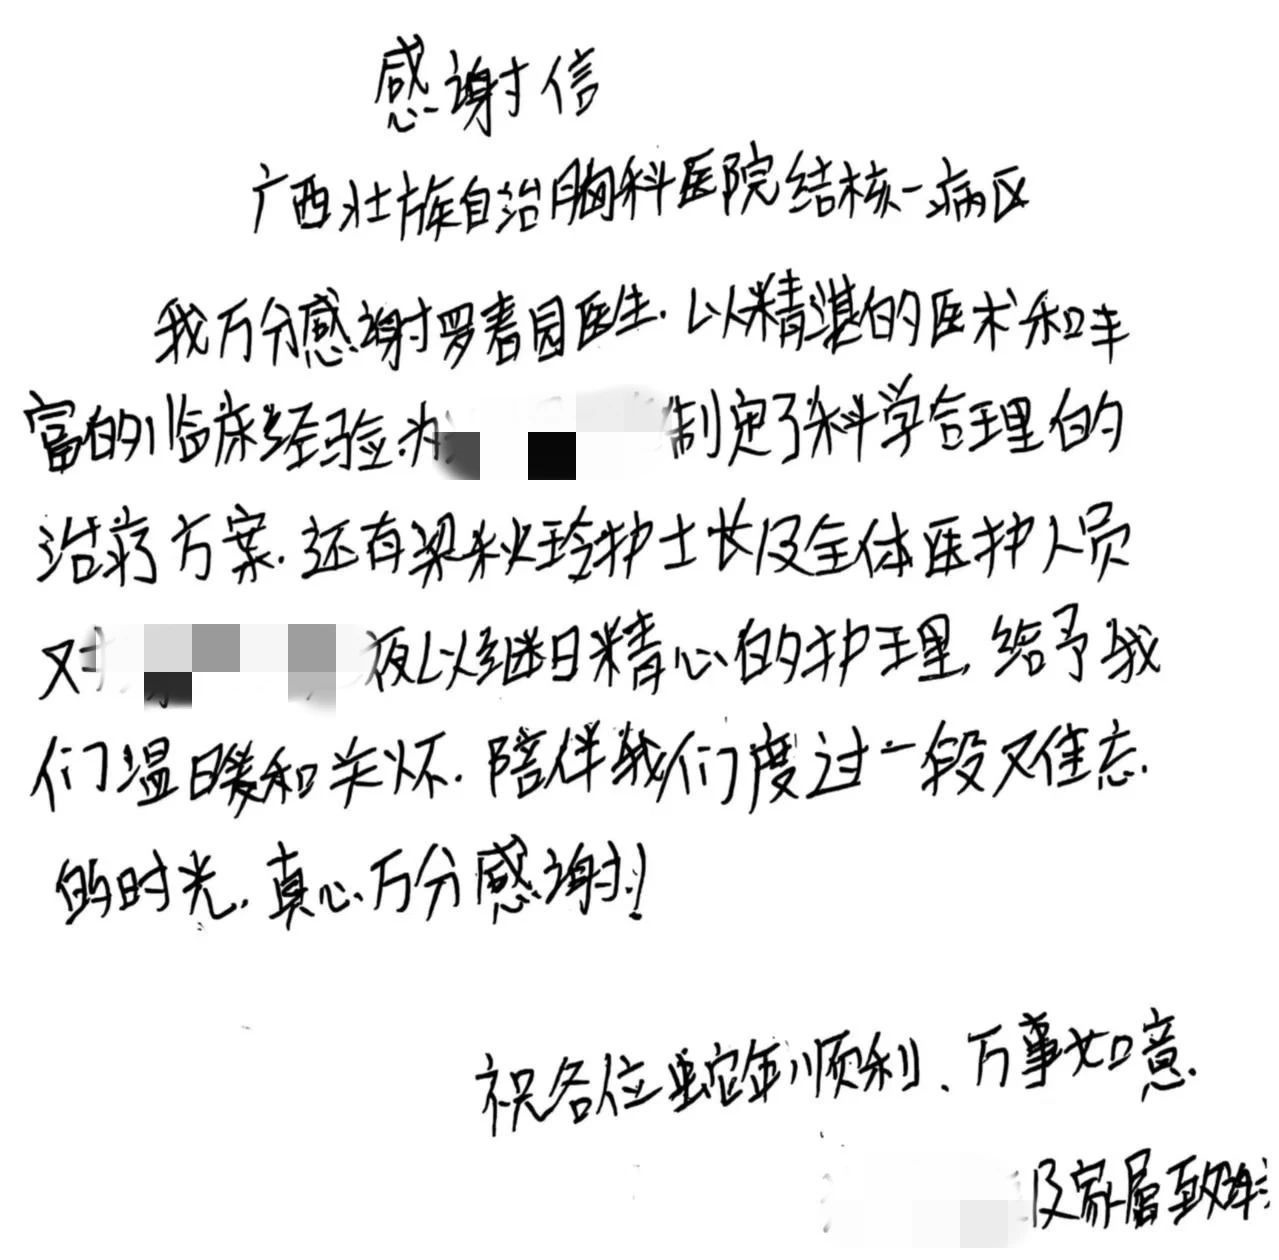 感谢信
广西壮族自治胸科医院结核一病区
我万分感谢罗春园医生.以精湛的医术和丰
富的临床经验.为制定了科学合理的
治疗方案.还有梁秋玲护士长及全体医护人员
对夜以继日精心的护理,给予我
们温暖和关怀.陪伴我们度过一段又难忘.
的时光.真心万分感谢!
祝各位蛇年顺利、万事如意.
及家属致